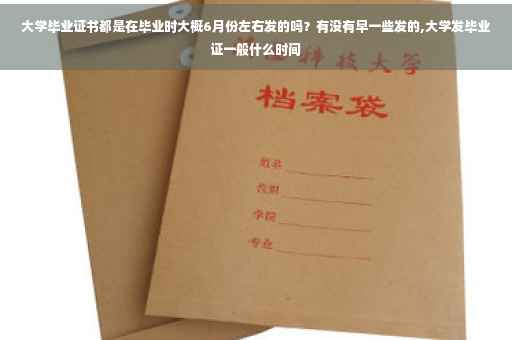 大学毕业证书都是在毕业时大概6月份左右发的吗？有没有早一些发的,大学发毕业
证一般什么时间
科技大学
档案袋
姓名
学院
专业